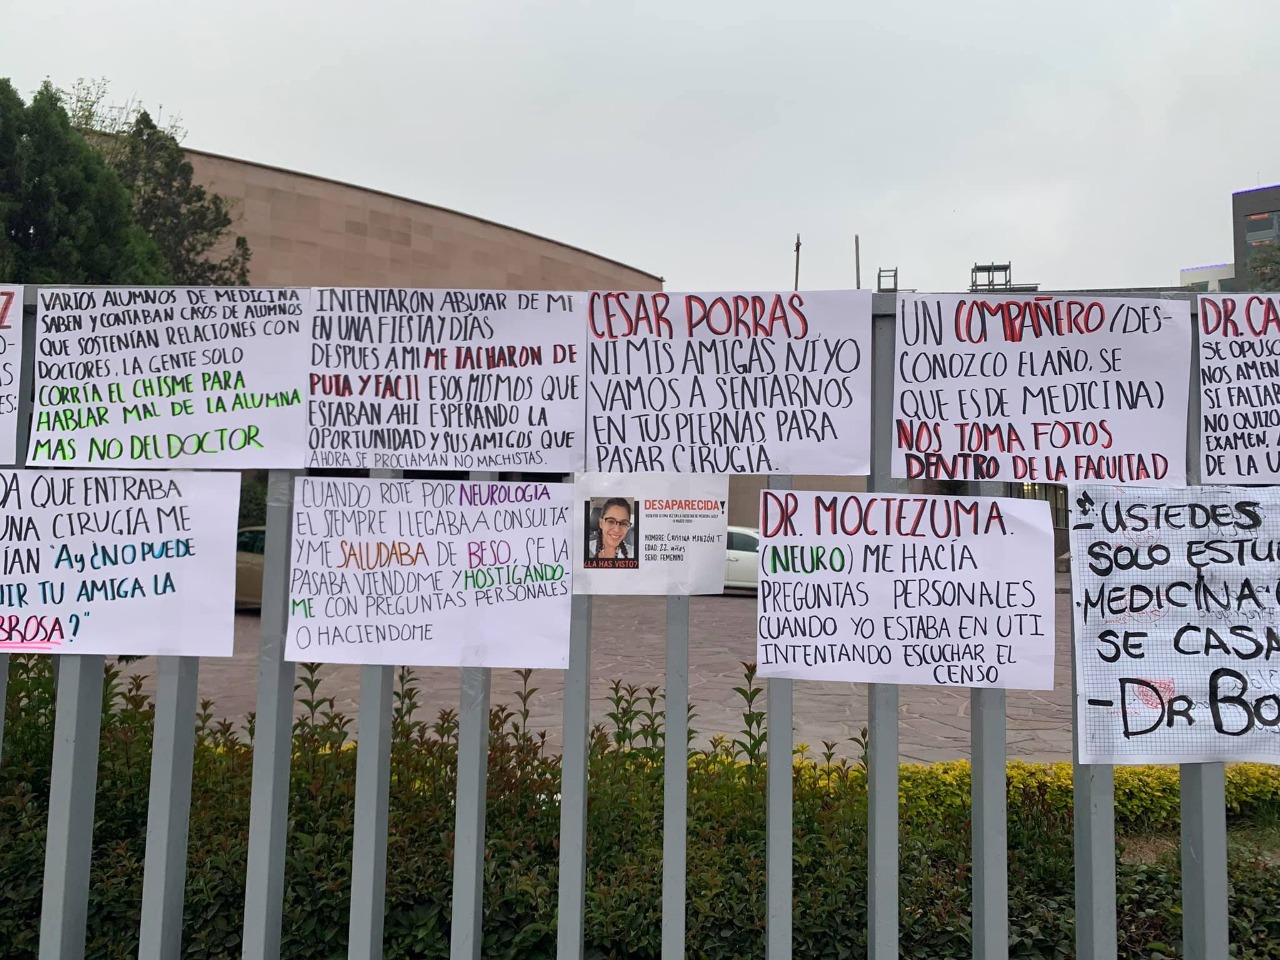 Z
O-
AS
ES.
VARIOS ALUMNOS DE MEDICINA
SABEN Y CONTABAN CASOS DE ALUMNOS
QUE SOSTENÍAN RELACIONES CON
DOCTORES, LA GENTE SOLO
CORRÍA EL CHISME PARA
HABLAR MAL DE LA ALUMNA
MAS NO DEL DOCTOR
INTENTARON ABUSAR DE MI
EN UNA FIESTA Y DÍAS
DESPUES A MI ME TACHARON DE
PUTA Y FÁCIL ESOS MISMOS QUE
ESTABAN AHI ESPERANDO LA
OPORTUNIDAD Y SUS AMIGOS QUE
AHORA SE PROCLAMAN NO MACHISTAS.
CESAR PORRAS,
NI MIS AMIGAS NI YO
VAMOS A SENTARNOS
EN TUS PIERNAS PARA
PASAR CIRUGÍA.
UN COMPAÑERO (DES-
CONOZCO EL AÑO, SE
QUE ES DE MEDICINA)
NOS TOMA FOTOS
DENTRO DE LA FACULTAD
DR. CA
SE OPUSO
NOS AMEN
SI FALTA
NO QUIZO
EXAMEN,
DE LA U
DA QUE ENTRABA
UNA CIRUGÍA ME
ÍAN "Ay ¿NO PUEDE
UIR TU AMIGA LA
BROSA?"
CUANDO ROTE POR NEUROLOGÍA
EL SIEMPRE LLEGABA A CONSULTA
Y ME SALUDABA DE BESO, SE LA
PASABA VIENDOME Y HOSTIGÁNDO
ME CON PREGUNTAS PERSONALES
O HACIENDOME
DESAPARECIDA!
NOMBRE:
EDAD: 22 años
SEXO: FEMENINO
¿LA HAS VISTO?
DR. MOCTEZUMA.
(NEURO) ME HACÍA
PREGUNTAS PERSONALES
CUANDO YO ESTABA EN UTI
INTENTANDO ESCUCHAR EL
CENSO
"USTEDES
SOLO ESTU
MEDICINA
SE CASA
-DR BO